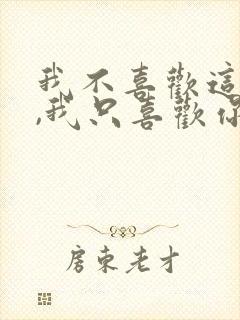 我不喜歡這
,我只喜歡你
房東老才